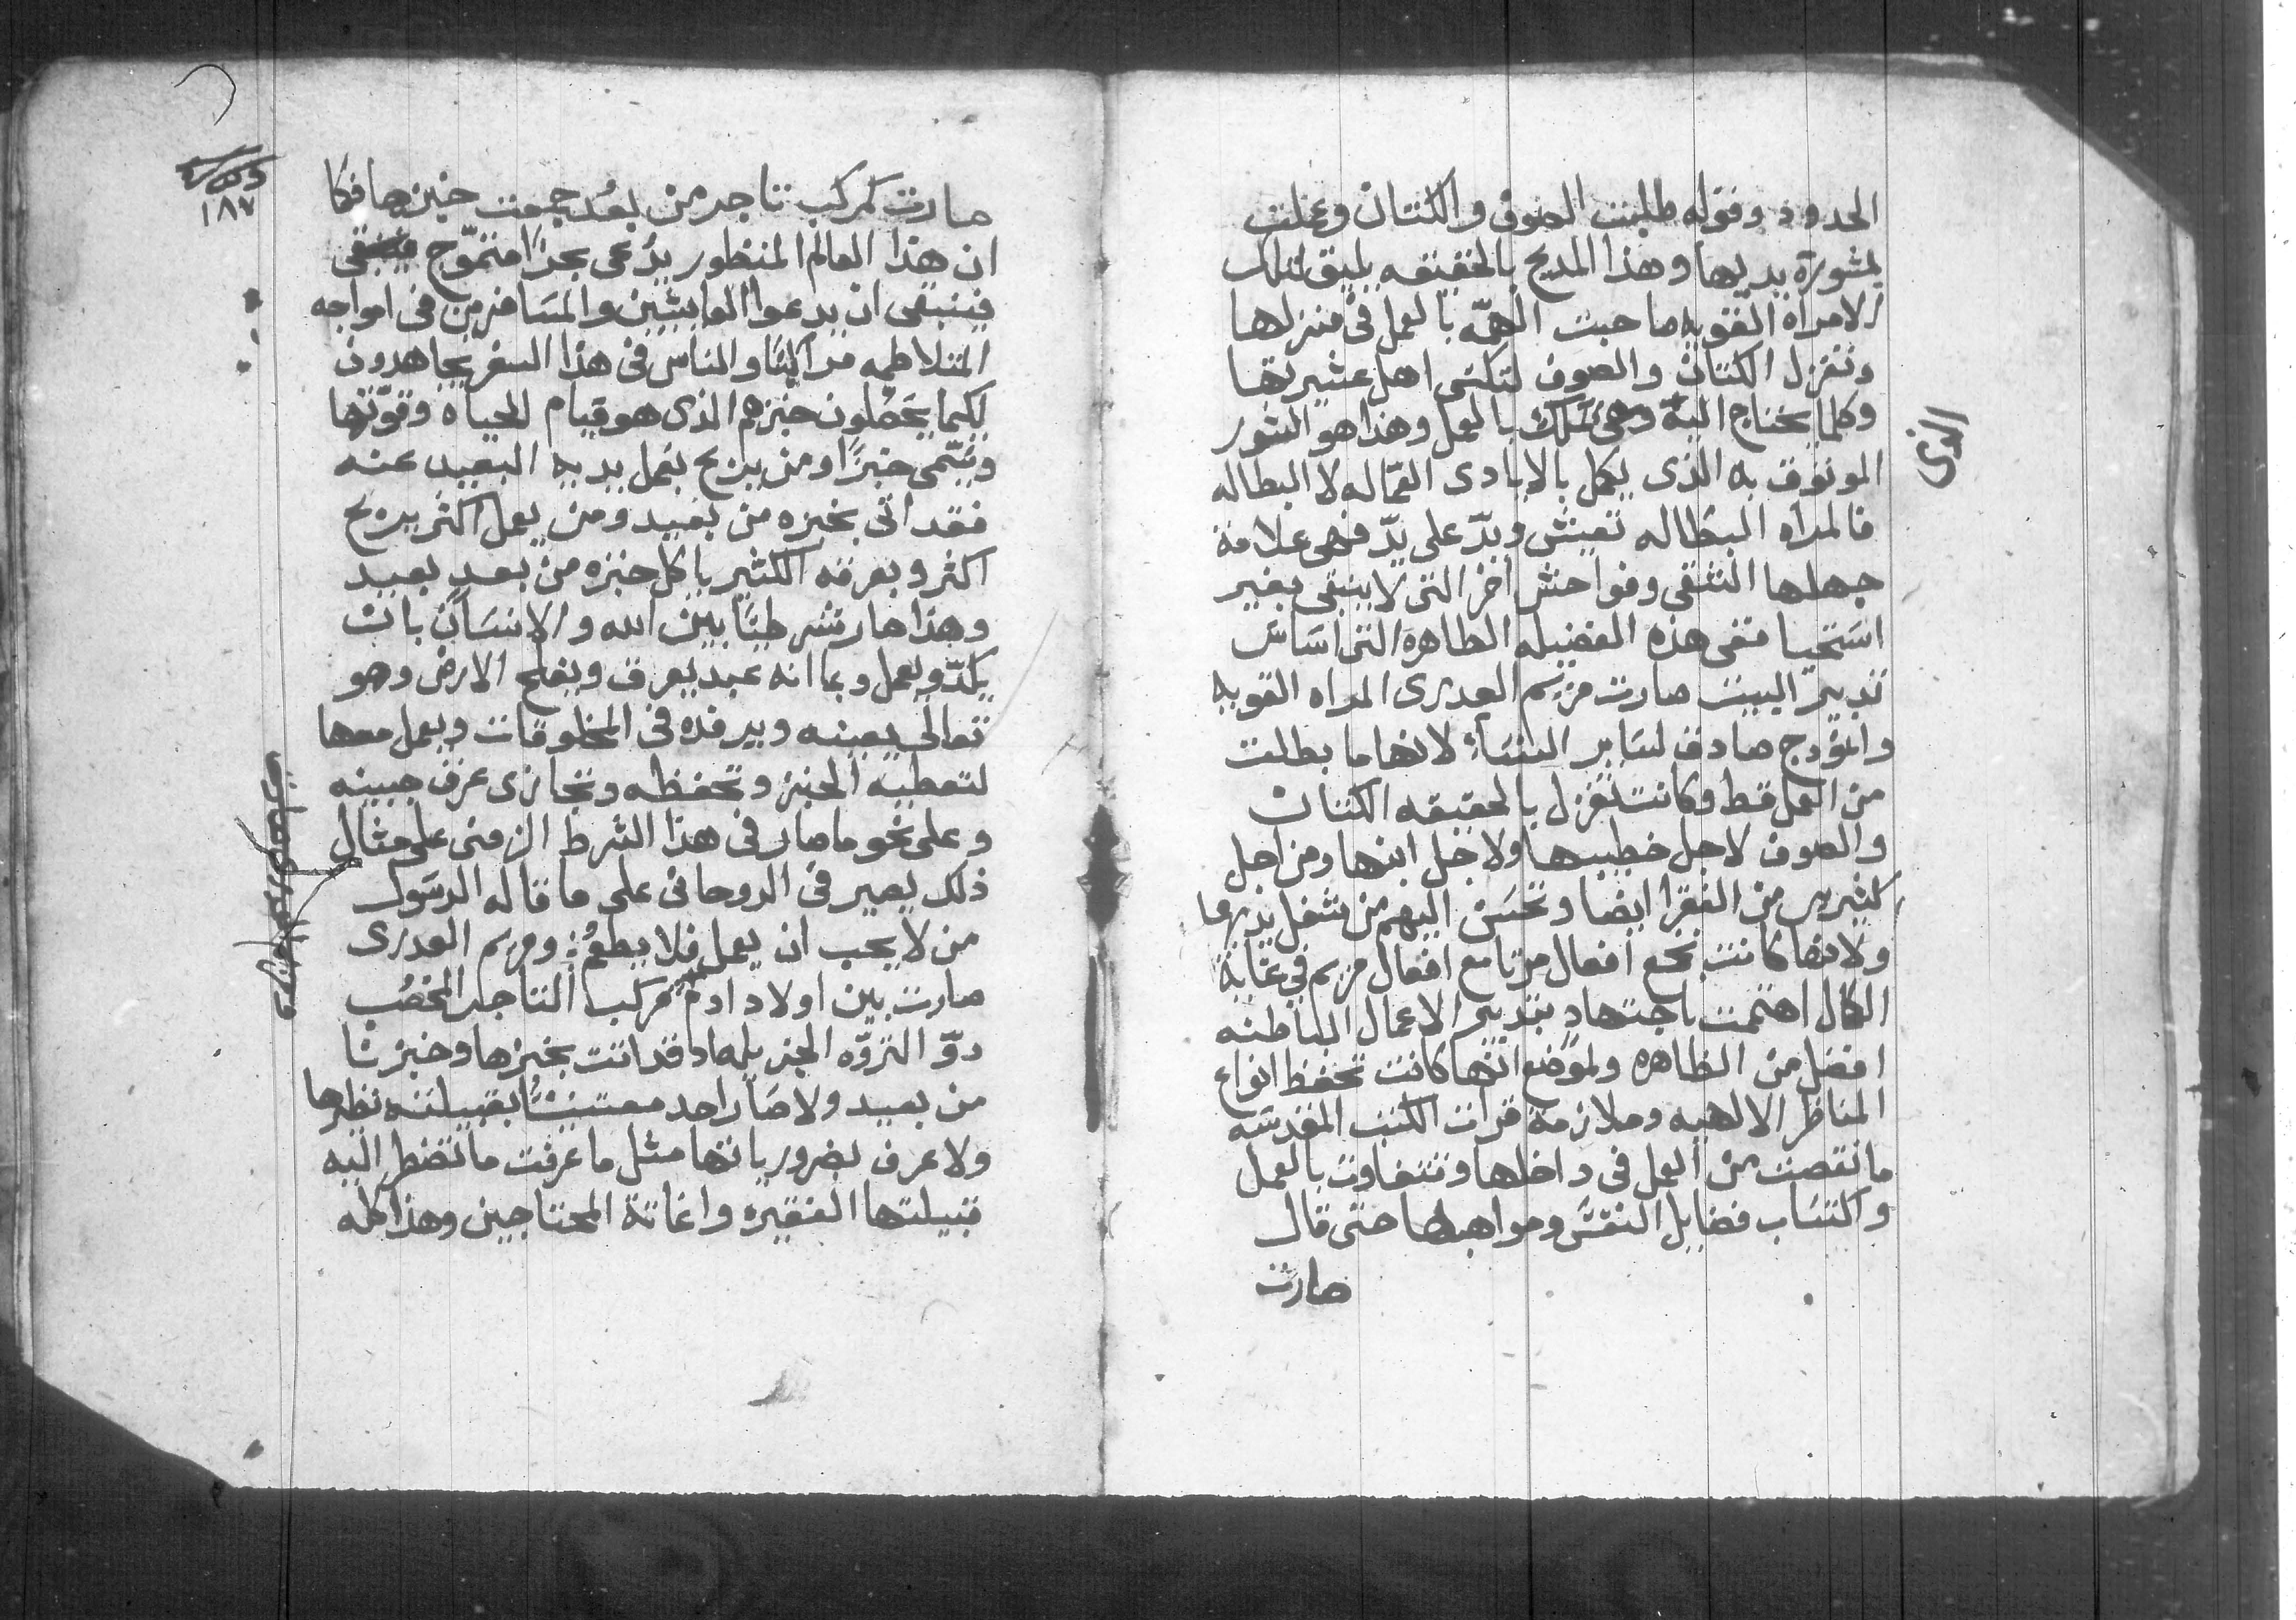 الحدود وقوله طلبت الصوف والكتان وعملت
بمشورة يديها وهذا المديح بالحقيقه يليق لتلك
الامراه القويه صاحبت الهمّه بالعمل في منزلها
وتغزل الكتان والصوف لتكسى اهل عشيرتها
وكلما يحتاج اليه وهى تملك بالعمل وهذا هو الشور
الموثوق به الذى يكمل بالايادى العمّاله لا البطاله
فالمراه البطاله تعيش ويدّ على يدّ فهى علامة
جهلها الشقى وفواحش اخر التى لا ينبغى بغير
استحيا ففى هذه الفضيله الطاهره التى اساس
تدبير البيت صارت مريم العدرى المراه القويه
وانمودج صادق لساير النساء لانها ما بطلت
من العمل قط وكانت تغزل بالحقيقه الكتان
والصوف لاجل خطيبها ولاجل ابنها ومن اجل
كثيرين من الفقرا ايضا وتحسن اليهم من شغل يديها
ولانها كانت تجمع افعال مرتا مع افعال مريم في غاية
الكمال اهتمت باجتهاد بتدبير الاعمال الباطنه
افضل من الظاهره ولموضع انها كانت تحفظ انواع
المناظر الالهيه وملازمة قرات الكتب المقدسه
ما نقصت من العمل فى داخلها وتتفاوت بالعمل
واكتساب فضايل النفس ومواهبها حتى قال
صارت
الذى
صارت كمركب تاجر من بعُد جمعت خبزها فكما
ان هذا العالم المنظور يدُعى بحرًا متموّج
فينبغى ان يدعوا العايشين والمسافرين فى امواجه
المتلاطمه مراكبًا والناس فى هذا السفر يجاهدون
لكيما يحَصلون خبزهم الذى هو قيام للحياه وقوّتها
ويتسّمى خبزًا ومن يربح بعمل يديه البعيد عنه
فقد اتى بخبزه من بعيد ومن يعمل اكثر يربح
اكثر وبعرقه الكثير ياكل خبزه من بعد بعيد
وهذا صار شرطيًا بين الله والانسان بان
يكدّ ويعمل وبما انه عبد يعرق ويفلح الارض وهو
تعالى يعينه ويرفده فى المخلوقات ويعمل معها
لتعطيه الخبز وتحفظه وتجازى عرق جبينه
وعلى نحو ما صار فى هذا الشرط الزمنى على مثال
ذلك يصير فى الروحانى على ما قاله الرسول
من لا يحب ان يعمل فلا يطعُم: ومريم العدرى
صارت بين اولاد ادم كمركب التاجر المخصُب
دوّ الثروّه الجزيله اد قد اتت بخبزها وخبزنا
من بعيد ولا صار احد معتنيًا بقبيلته نظيرها
ولا عرف بضرورياتها مثل ما عرفت ما تضطر اليه
قبيلتها الفقيره واغاثة المحتاجين وهذا كله
١٨٧